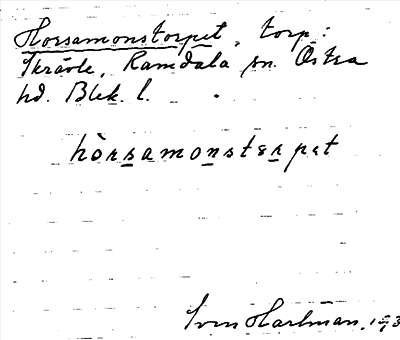 Horsamonstorpet, torp:
Skrävle, Ramdala sn. Östra
hd. Blek. l.
hòrsamonstərpət
Sven Hartman, 193